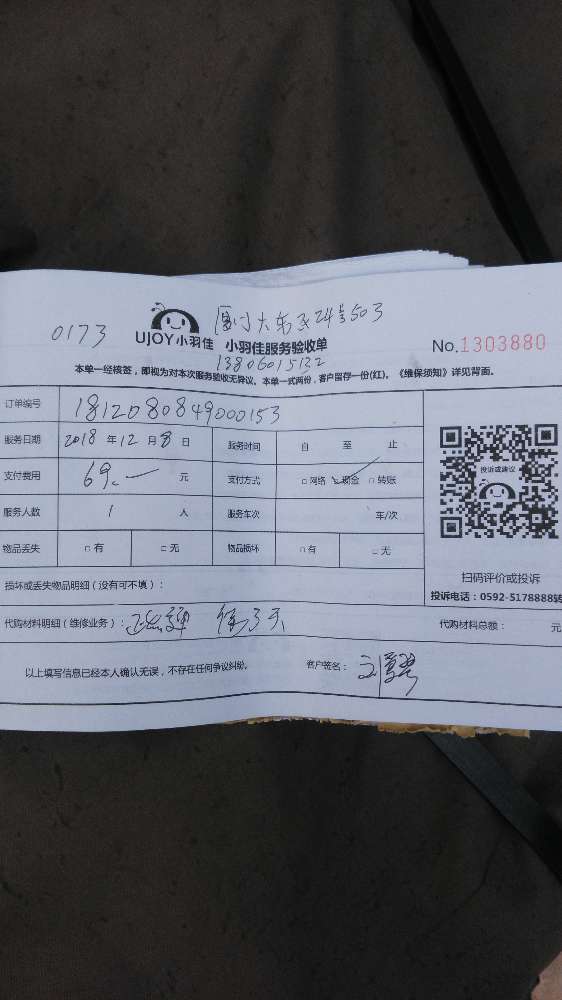 厦门大东24号503
0173
UJOY小羽佳 小羽佳服务验收单 No.1303880
13806015132
本单一经核签，即视为对本次服务验收无异议。本单一式两份，客户留存一份(红)。《维保须知》详见背面。
订单编号 1812080849000153
服务日期 2018 年 12 月 8 日 服务时间 自 至 止
支付费用 69.一 元 支付方式 □网络 □现金 □转账
服务人数 1 人 服务车次 车/次
物品丢失 □有 □无 物品损坏 □有 □无
损坏或丢失物品明细（没有可不填）：
代购材料明细（维修业务）： 代购材料总额： 元
以上填写信息已经本人确认无误，不存在任何争议纠纷。 客户签名：
投诉或建议
扫码评价或投诉
投诉电话：0592-5178888转